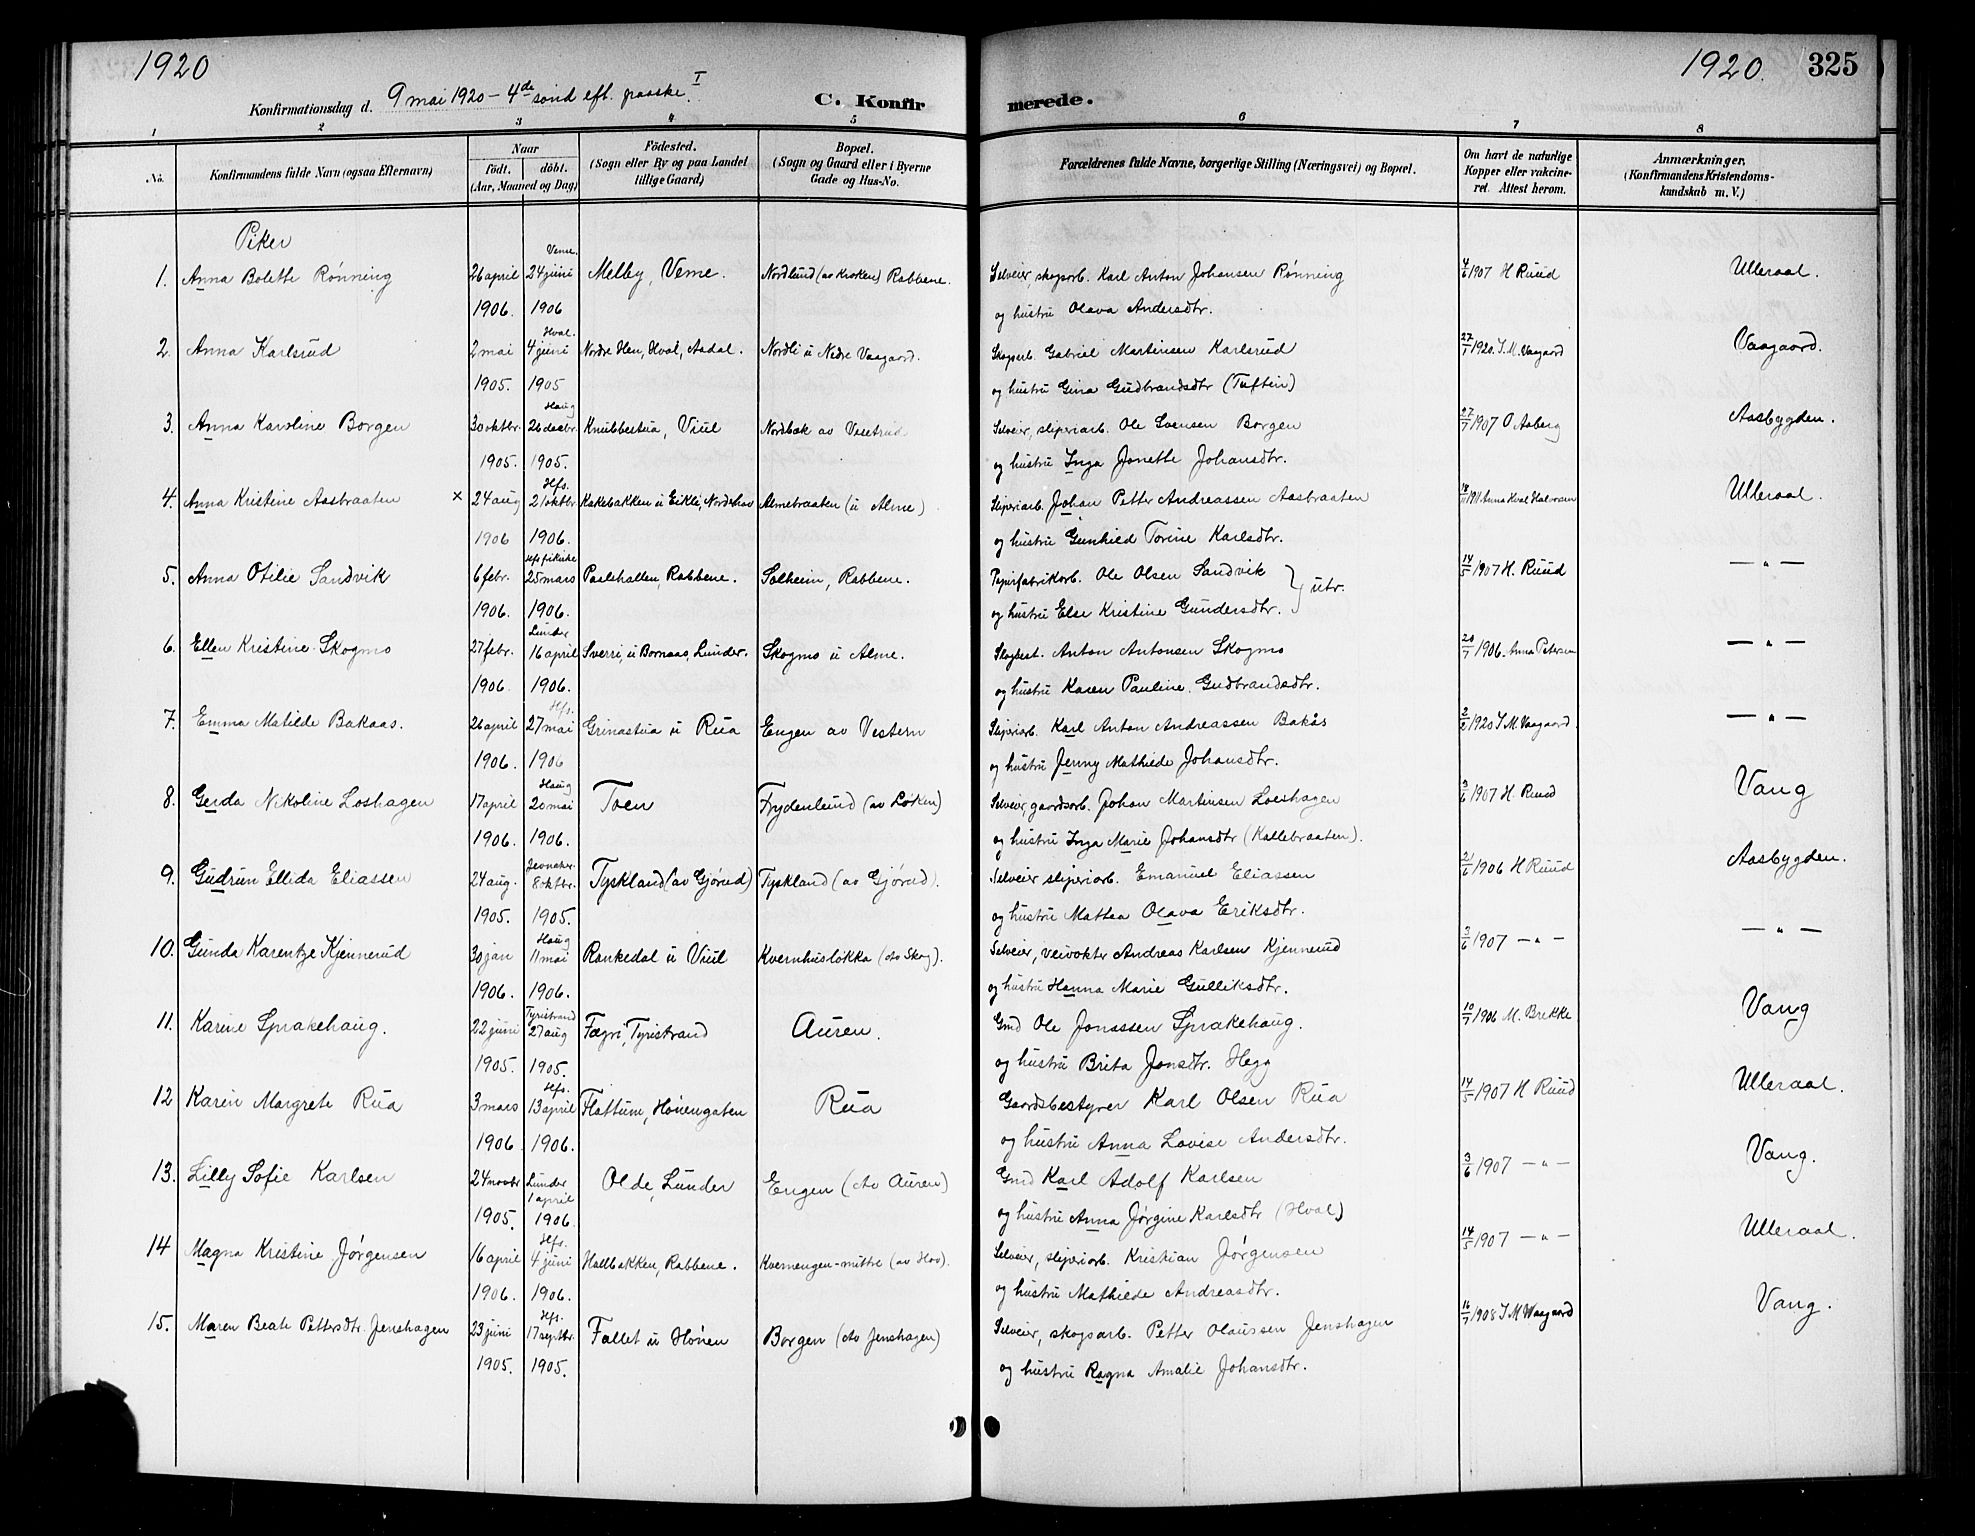 1920
1920. 325
Konfirmationsdag d. 9 mai 1920 - 4de sønd eft. paaske. I
C. Konfirmerede.
1 2 3 4 5 6 7 8
No. Konfirmandens fulde Navn (ogsaa Efternavn) Naar født. døbt. (Aar, Maaned og Dag) Fødested. (Sogn eller By og paa Landet tillige Gaard) Bopæl. (Sogn og Gaard eller i Byerne Gade og Hus-No. Forældrenes fulde Navne, borgerlige Stilling (Næringsvei) og Bopæl. Om havt de naturlige Kopper eller vakcineret. Attest herom. Anmærkninger, (Konfirmandens Kristendomskundskab m. V.)
Piker
Veme.
1. Anna Bolette Rønning 26 april 24 juni Melby, Veme. Nordlund (av Kroken) Rabbene. Selveier, skogsarb. Karl Anton Johansen Rønning 4/6 1907 H Ruud Ulleraal.
1906. 1906 og hustru Olava Andersdtr.
Hval.
2. Anna Karlsrud 2 mai 4 juni Nordre Hen, Hval, Aadal. Nordli u Nedre Vaagaard. Skogsarb. Gabriel Martinsen Karlsrud 27/1 1920. I. M. Vaagaard Vaagaard.
1905. 1905 og hustru Gina Gudbrandsdtr (Tuftin)
Haug
3. Anna Karoline Borgen 30 oktbr. 26 decbr. Knubbestua, Viul Nordbak av Vesetrud Selveier, sliperiarb. Ole Svensen Borgen 27/7 1907 O Aaberg Aasbygden.
1905. 1905. og hustru Inga Jonette Johansdtr.
Hfs.
4. Anna Kristine Aasbraaten × 24 aug 21 oktbr Kakebakken u Eikli, Nordrehov Almebraaten (u Alme) Sliperiarb. Johan Petter Andreassen Aasbraaten 18/11 1911 Anna Hval Halvorsen Ulleraal.
1906 1906. og hustru Gunhild Torine Karlsdtr.
5. Anna Otilie Sandvik 6 febr. 25 mars Paalehallen, Rabbene. Solheim, Rabbene. Papirfabrikarb. Ole Olsen Sandvik } utr. 14/5 1907 H. Ruud — " —
1906. 1906. og hustru Else Kristine Gundersdtr.
Lunder
6. Ellen Kristine Skogmo 27 febr. 16 april Sverri, u Bornaas, Lunder. Skogmo u Alme. Skogbest. Anton Antonsen Skogmo 20/7 1906. Anna Petersen — " —
1906. 1906. og hustru Karen Pauline Gudbrandsdtr.
Hfs.
7. Emma Matilde Bakaas. 26 april 27 mai Grinastua u Rua Engen av Vestern Sliperiarb. Karl Anton Andreassen Bakås 2/2 1920 I M. Vaagaard. — " —
1906. 1906 og hustru Jenny Mathilde Johansdtr.
Haug
8. Gerda Nikoline Loshagen 17 april 20 mai Toen Frydenlund (av Løken) Selveier, gaardsarb. Johan Martinsen Loeshagen 3/6 1907 H. Ruud Vang
1906. 1906. og hustru Inga Marie Johansdtr (Kallebraaten).
Jevnaker
9. Gudrun Ellida Eliassen 24 aug. 8 oktbr. Tyskland (av Gjørud) Tyskland (av Gjørud). Selveier sliperiarb. Emanuel Eliassen 21/6 1906 H Ruud Aasbygden.
1905. 1905. og hustru Mathea Olava Eriksdtr.
Haug
10. Gunda Karentze Kjennerud 30 jan 11 mai Rankedal u Viul Kvernhusløkka (av Skog). Selveier, veivokter Andreas Karlsen Kjennerud 3/6 1907 — " — — " —
1906. 1906. og hustru Hanna Marie Gulliksdtr.
Tyristrand
11. Karine Sprakehaug. 22 juni 27 aug Fægri, Tyristrand Auren. Gmd Ole Jonassen Sprakehaug. 10/7 1906 M. Brekke Vang
1905. 1905. og hustru Brita Jonsdtr. Hegg
Hfs.
12 Karen Margrete Rua 3 mars 13 april Flattum, Hønengaten Rua Gaardsbestyrer Karl Olsen Rua 14/5 1907 H Ruud Ulleraal.
1906. 1906. og hustru Anna Lovise Andersdtr.
13. Lilly Sofie Karlsen 24 novbr Lunder 1 april Olde, Lunder Engen (av Auren) Gmd Karl Adolf Karlsen 3/6 1907 — " — Vang.
1905. 1906. og hustru Anna Jørgine Karlsdtr (Hval)
Hfs.
14 Magna Kristine Jørgensen 16 april 4 juni Hallbakken, Rabbene. Kvernengen-mittre (av Hov). Selveier, sliperiarb. Kristian Jørgensen 14/5 1907 — " — Ulleraal.
1906. 1906. og hustru Mathilde Andreasdtr.
Hfs.
15. Maren Beate Pettersdtr. Jenshagen 23 juni 17 septbr. Fallet u Hønen Borgen (av Jenshagen) Selveier, skogsarb. Petter Olaussen Jenshagen 16/7 1908 I M Vaagaard Vang.
1905. 1905. og hustru Ragna Amalie Johansdtr.